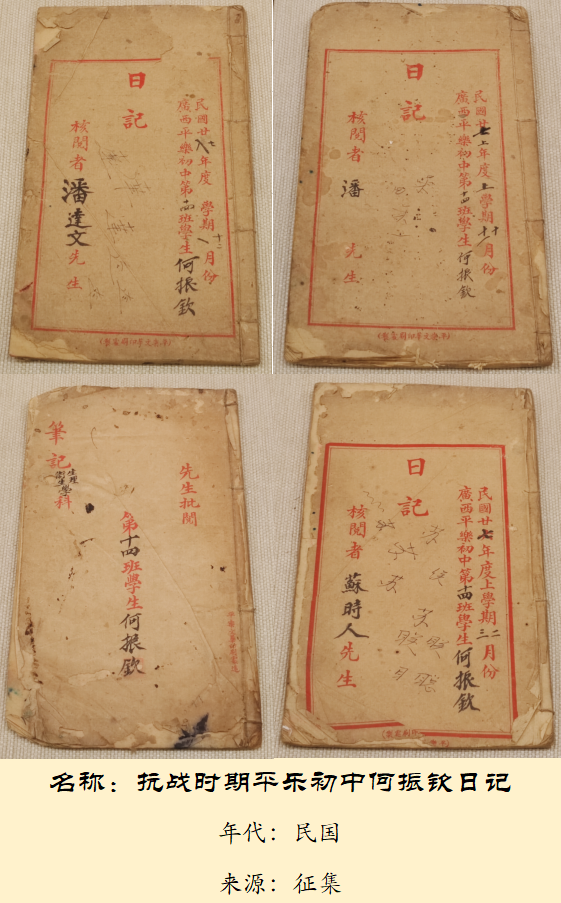 日記
民國廿八年度 學期十二月份
廣西平樂初中第十四班學生何振欽
核閱者潘達文先生
日記
民國廿七年度上學期十月份
廣西平樂初中第十四班學生何振欽
核閱者潘 先生
先生批閱
第十四班學生何振欽
筆記
生理衛生學科
日記
民國廿七年度上學期二三月份
廣西平樂初中第十四班學生何振欽
核閱者蘇時人先生
名称：抗战时期平乐初中何振钦日记
年代：民国
来源：征集